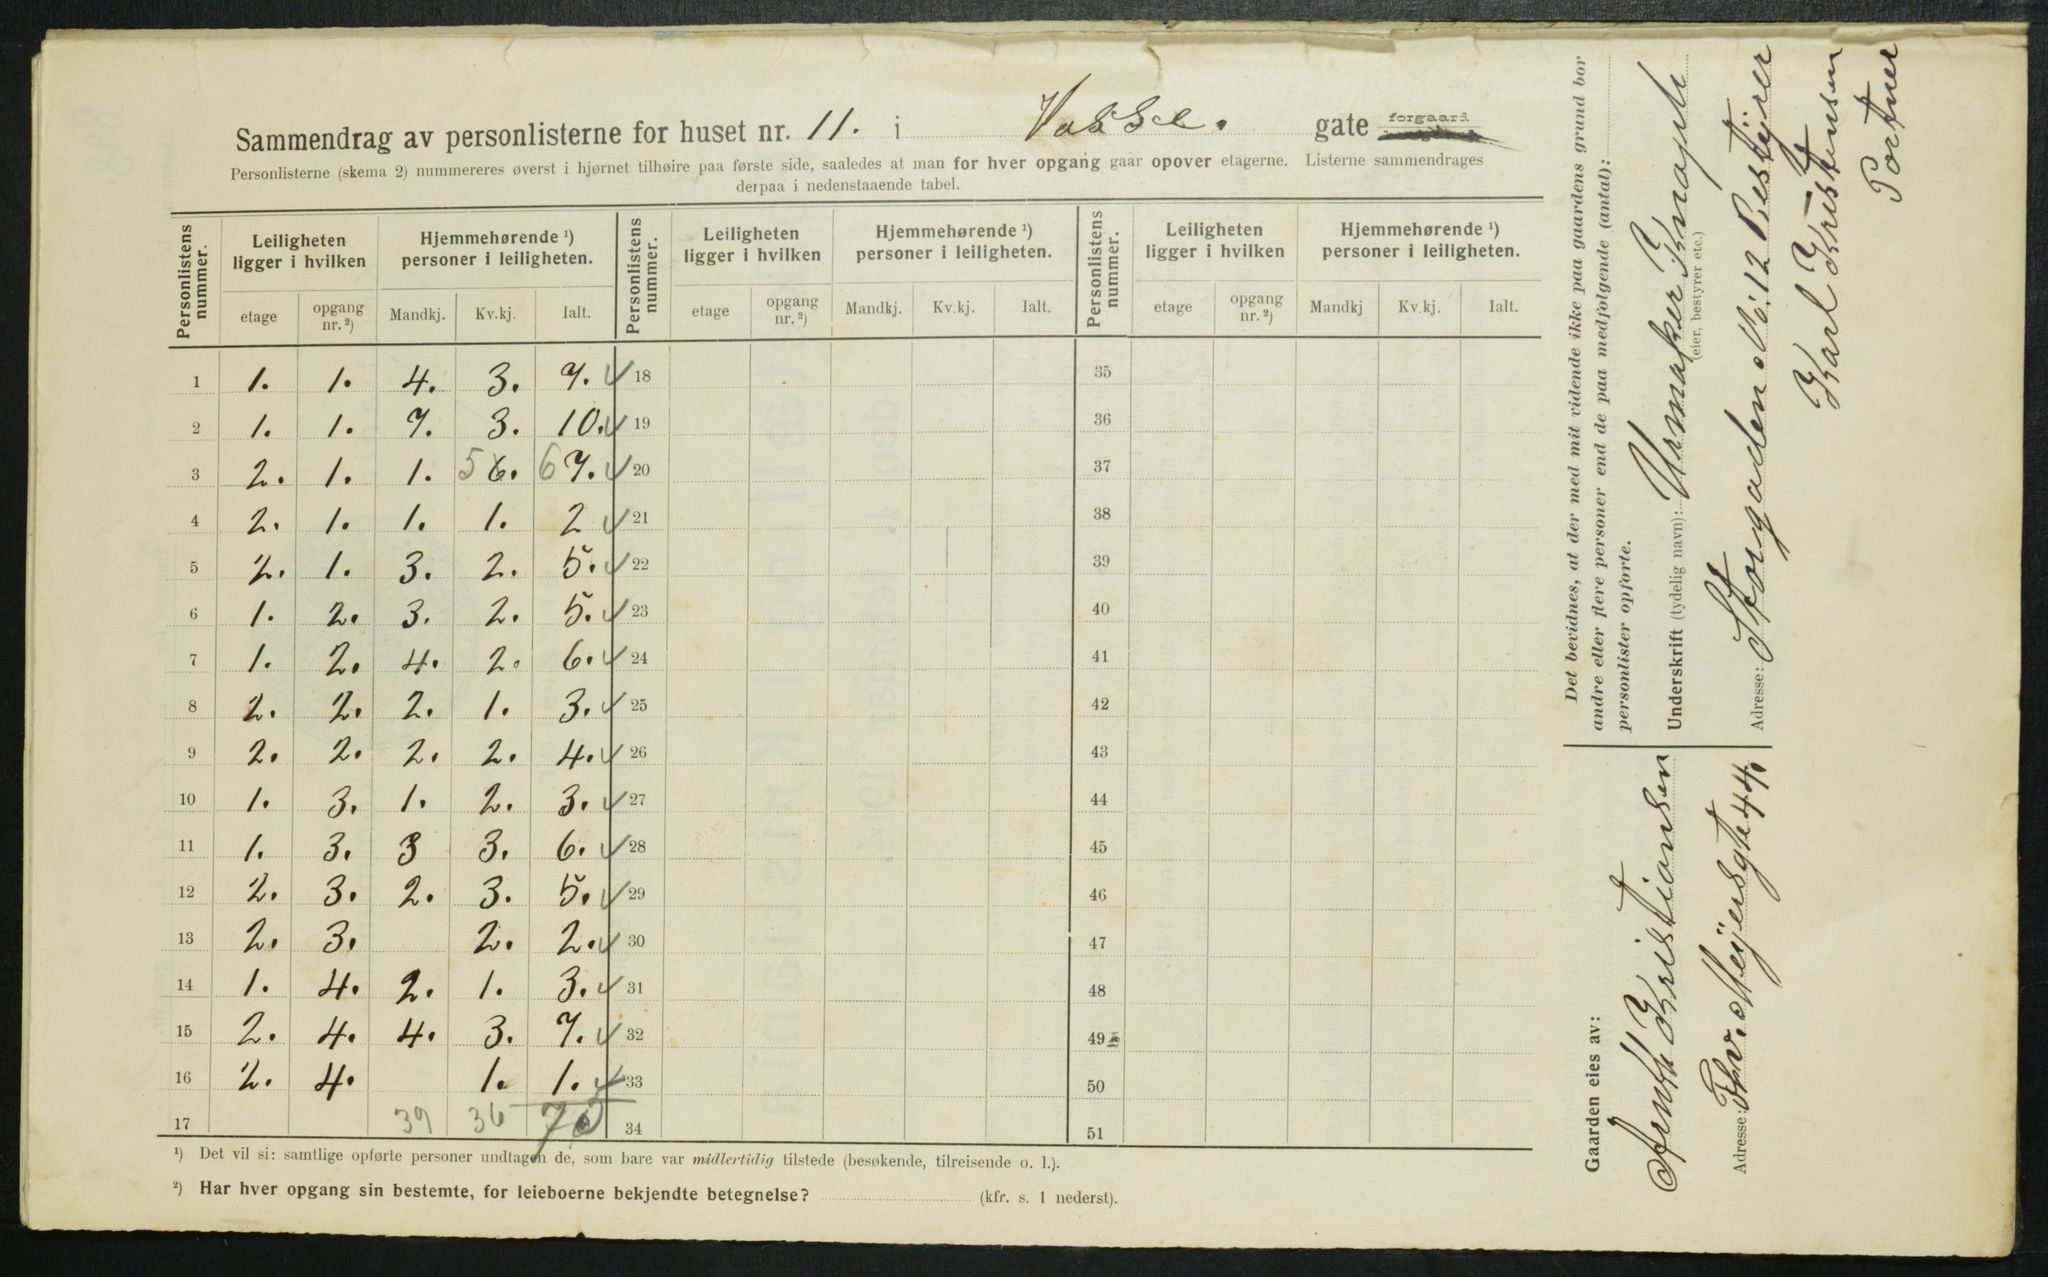 Sammendrag av personlisterne for huset nr. 11. i Vosse. gate forgaard
Personlisterne (skema 2) nummereres øverst i hjørnet tilhøire paa første side, saaledes at man for hver opgang gaar opover etagerne. Listerne sammendrages
derpaa i nedenstaaende tabel.
Personlistens nummer. Leiligheten ligger i hvilken Hjemmehørende ¹) personer i leiligheten. Personlistens nummer. Leiligheten ligger i hvilken Hjemmehørende ¹) personer i leiligheten. Personlistens nummer. Leiligheten ligger i hvilken Hjemmehørende ¹) personer i leiligheten.
etage opgang nr. ²) Mandkj. Kv.kj. Ialt. etage opgang nr. ²) Mandkj. Kv.kj. Ialt. etage opgang nr. ²) Mandkj Kv.kj. Ialt.
1 1. 1. 4. 3. 7. 18 35
2 1. 1. 7. 3. 10. 19 36
3 2. 1. 1. 5 6. 6 7. 20 37
4 2. 1. 1. 1. 2 21 38
5 2. 1. 3. 2. 5. 22 39
6 1. 2. 3. 2. 5. 23 40
7 1. 2. 4. 2. 6. 24 41
8 2. 2. 2. 1. 3. 25 42
9 2. 2. 2. 2. 4. 26 43
10 1. 3. 1. 2. 3. 27 44
11 1. 3. 3 3. 6. 28 45
12 2. 3. 2. 3. 5. 29 46
13 2. 3. 2. 2. 30 47
14 1. 4. 2. 1. 3. 31 48
15 2. 4. 4. 3. 7. 32 49
16 2. 4. 1. 1. 33 50
17 39 36 75 34 51
¹) Det vil si: samtlige opførte personer undtagen de, som bare var midlertidig tilstede (besøkende, tilreisende o. l.).
²) Har hver opgang sin bestemte, for leieboerne bekjendte betegnelse? (kfr. s. 1 nederst).
Det bevidnes, at der med mit vidende ikke paa gaardens grund bor
andre eller flere personer end de paa medfølgende (antal):
personlister opførte.
Underskrift (tydelig navn): Urmaker Knaph
(eier, bestyrer etc.)
Adresse: Storgaden No: 12 Bestyrer
Karl Kristensen
Portner
Gaarden eies av:
Arndt Kristiansen
Adresse: Thv. Meyersgt 44.